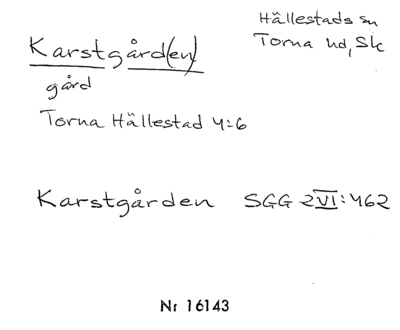 Hällestads sn
Karstgård(en)
Torna hd, Sk
gård
Torna Hällestad 4:6
Karstgården SGG 2VI:462
Nr 16143